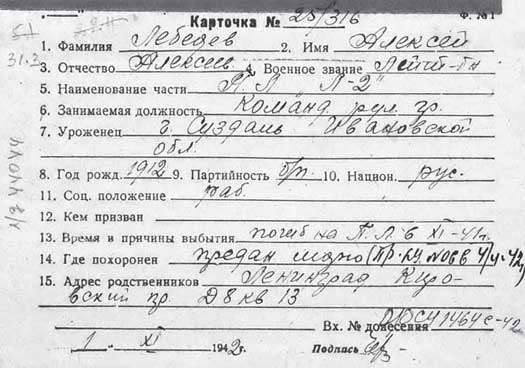 Ф. № 1
Карточка № 25/316
1. Фамилия Лебедев 2. Имя Алексей
31.3
3. Отчество Алексеев 4. Военное звание Лейт-нт
5. Наименование части П.Л. Л-2"
6. Занимаемая должность Команд рул. гр.
7. Уроженец г. Суздаль Ивановской
обл.
8. Год рожд. 1912 9. Партийность б/п. 10. Национ. рус.
11. Соц. положение раб.
12. Кем призван
13. Время и причины выбытия погиб на П.Л. в XI-41г.
14. Где похоронен предан морю (Пр. КУ № 088 4/V-42)
15. Адрес родственников Ленинград Киро-
вский пр. Д 8 кв 13
Вх. № донесения 1464с-42
1 " XI 1942г. Подпись